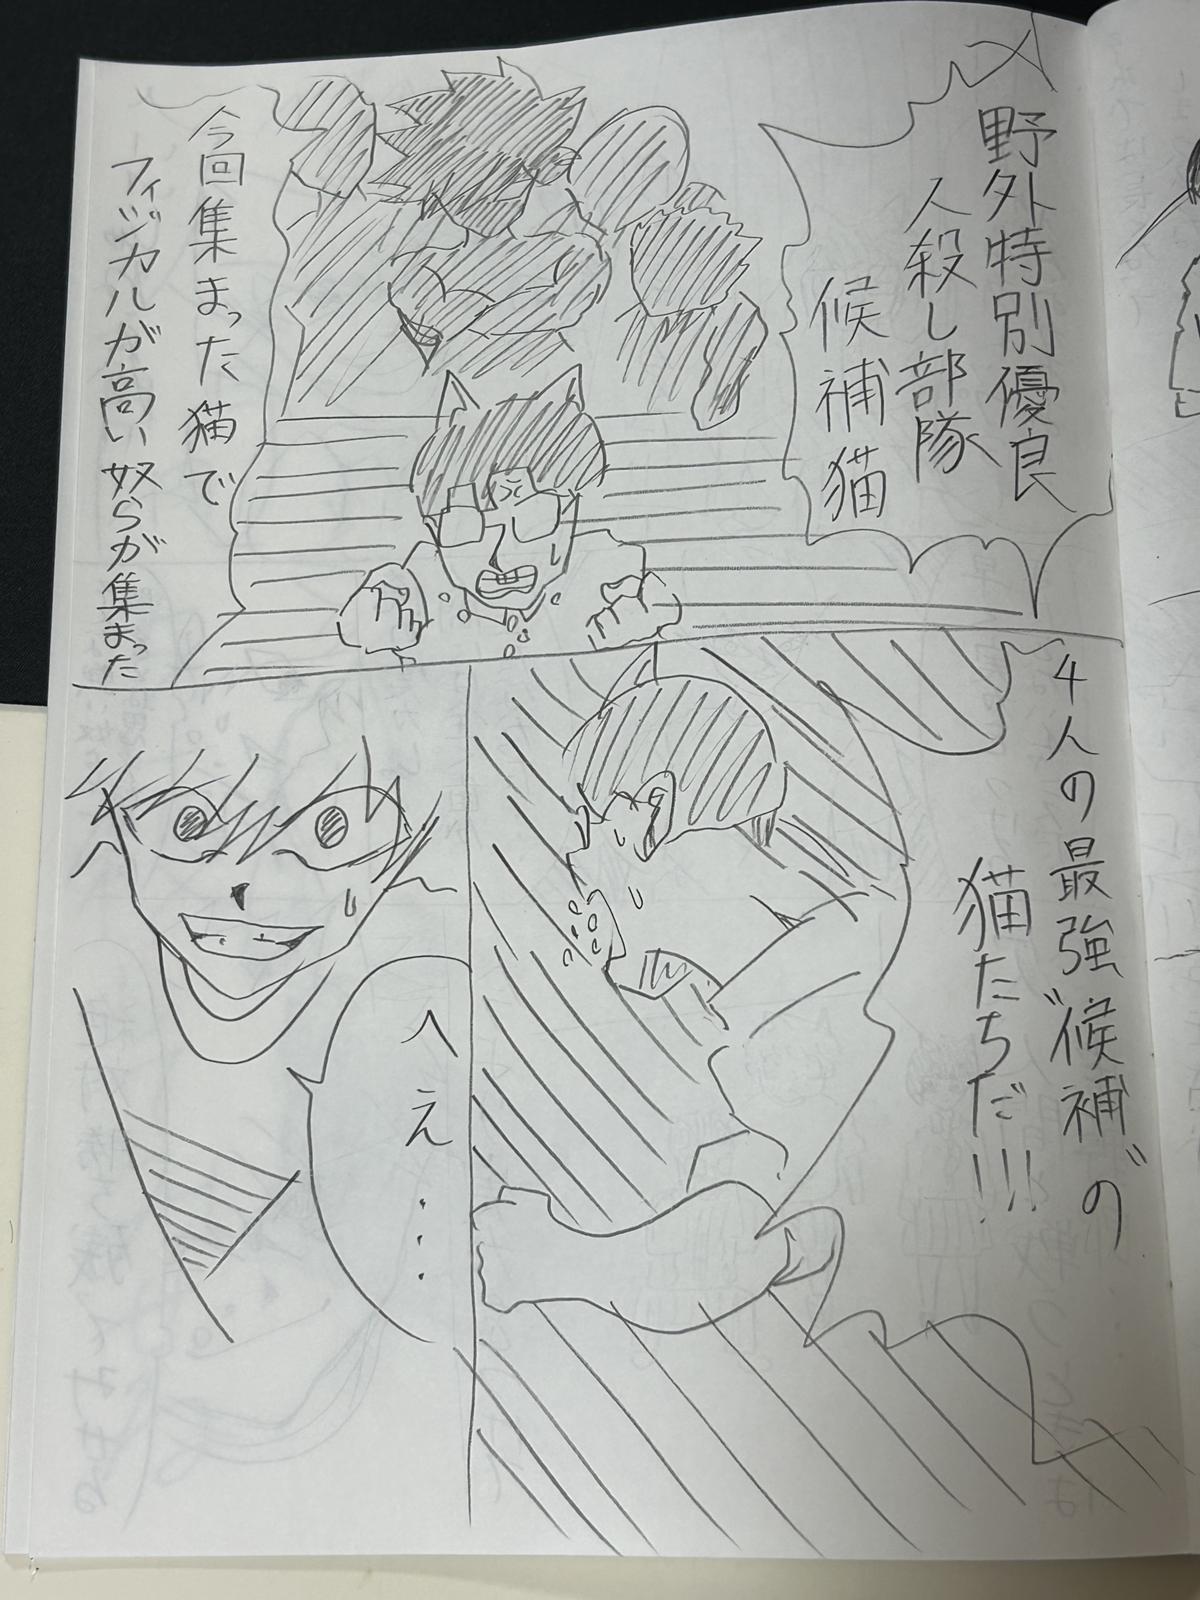 野外特別優良
人殺し部隊
候補猫
今回集まった猫で
フィジカルが高い奴らが集まった
4人の最強"候補"の
猫たちだ!!!
へえ・・・